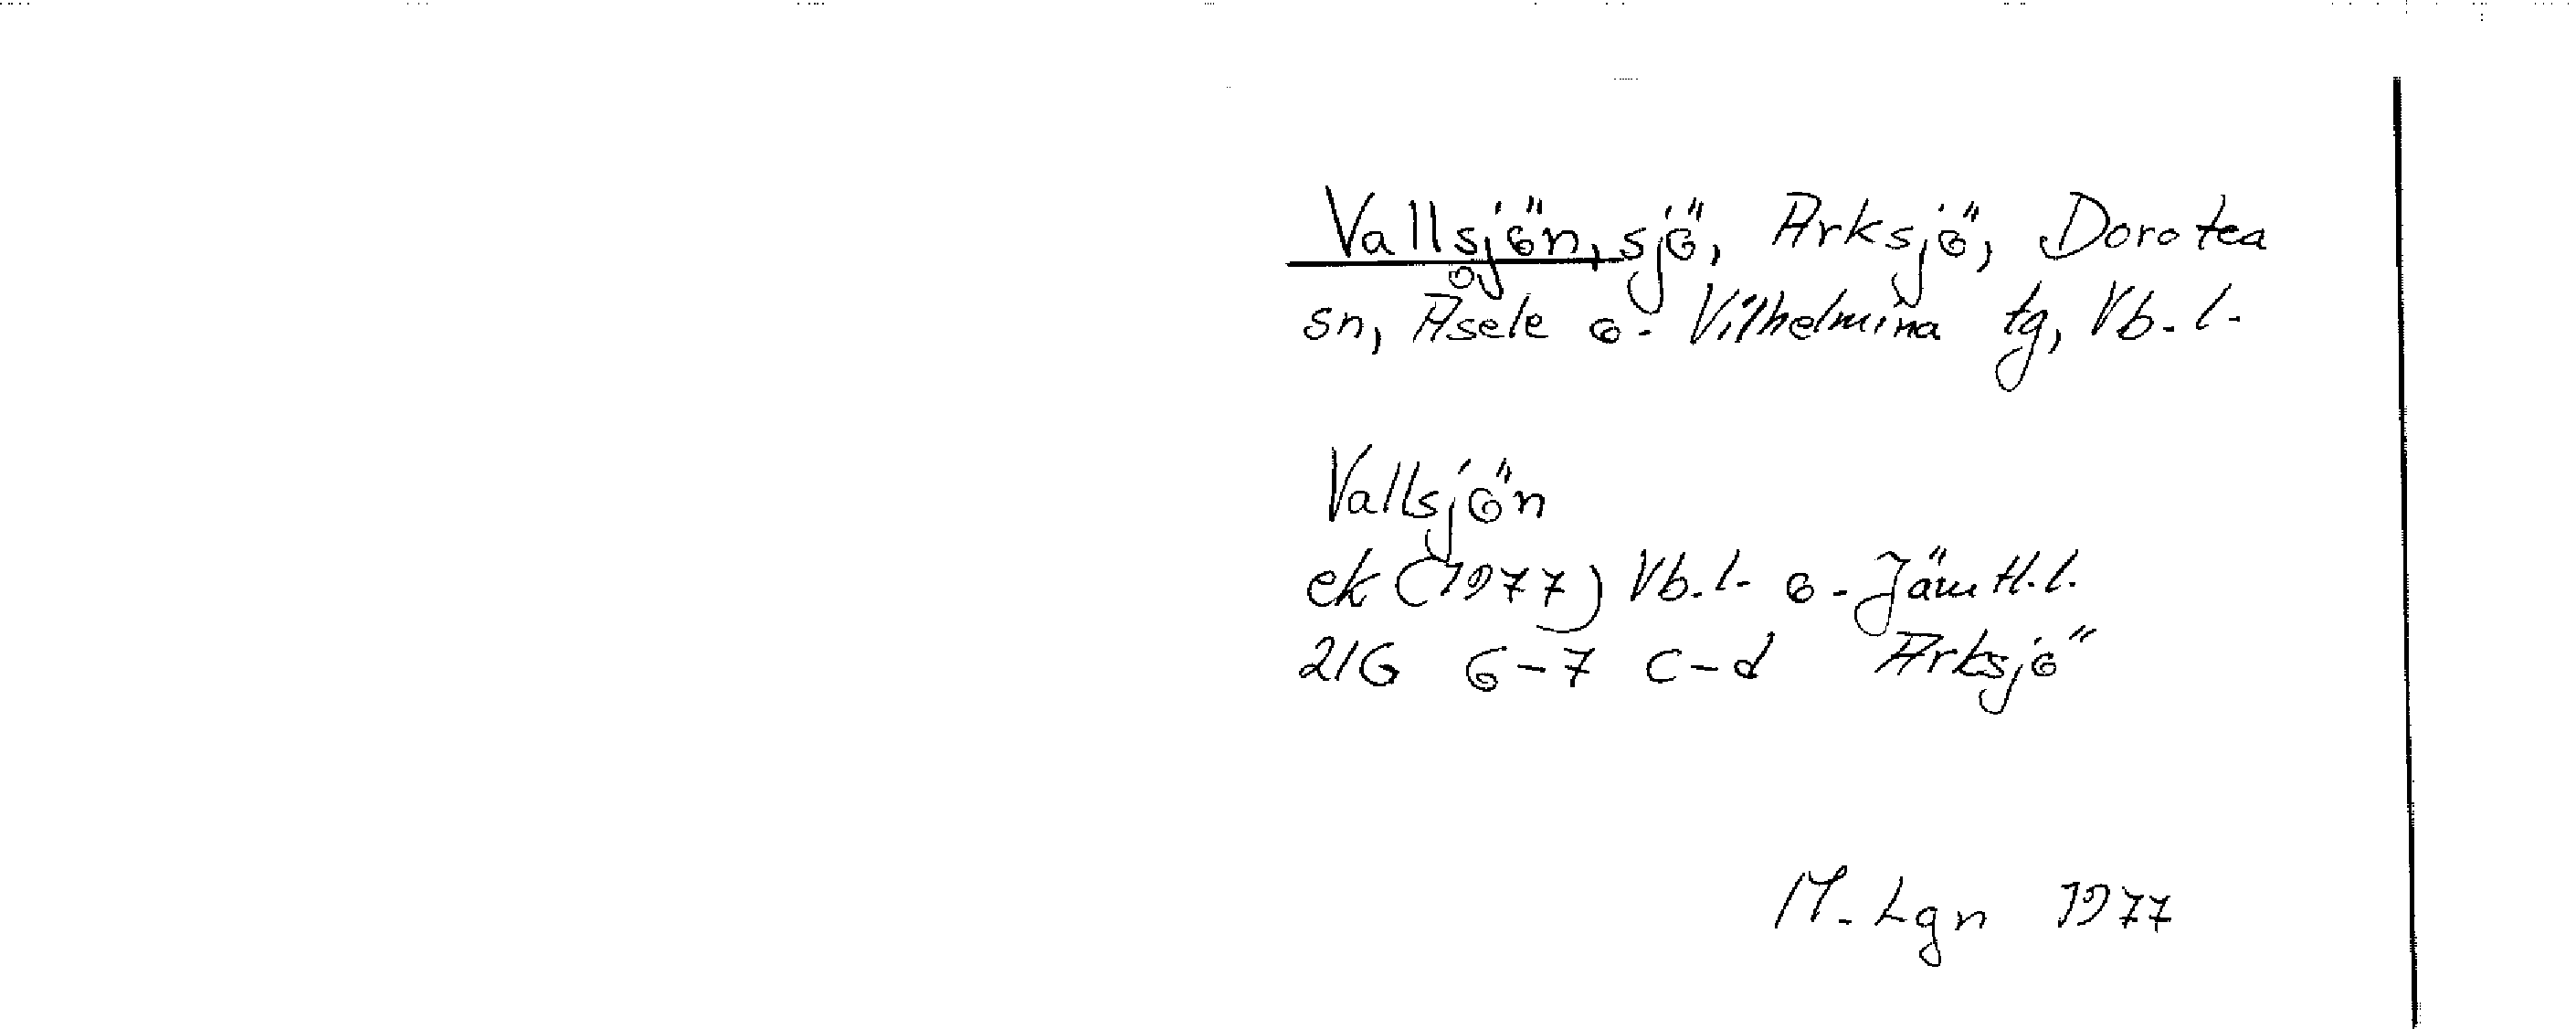 Vallsjön, sjö, Arksjö, Dorotea
sn, Åsele o. Vilhelmina tg, Vb. l.
Vallsjön
ek (1977) Vb. l. o. Jämtl. l.
21G 6-7 c-d Arksjö
M. Lgn 1977